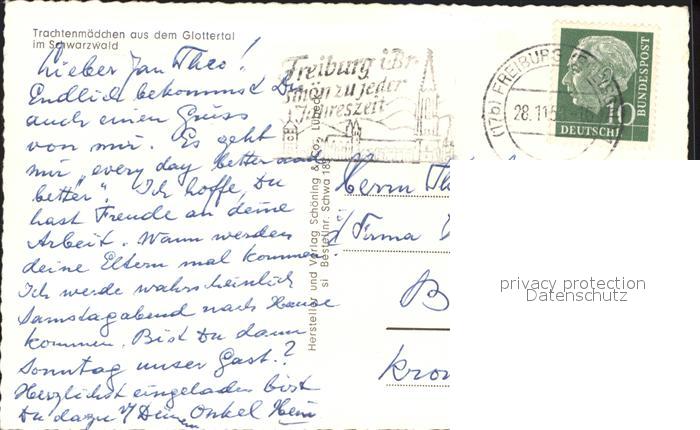 Trachtenmädchen aus dem Glottertal
im Schwarzwald
Lieber Jan Theo!
Endlich bekommst Du
auch einen Gruss
von mir. Es geht
mir "every day better and
better". Ich hoffe, Du
hast Freude an deine
Arbeit. Wann werden
deine Eltern mal kommen?
Ich werde wahrscheinlich
Samstagabend nach Hause
kommen. Bist Du dann
Sonntag unser Gast?
Herzlichst eingeladen bist
Du dazu v/ Deinem Onkel Hein
Freiburg i Br
schön zu jeder
Jahreszeit
(17b) FREIBURG
28.11.5
10
DEUTSCHE
BUNDESPOST
Hersteller und Verlag Schöning & Co., Lübeck
Bestellnr. Schwa 18
Herrn Th
i/ Firma
B
Kron
privacy protection
Datenschutz